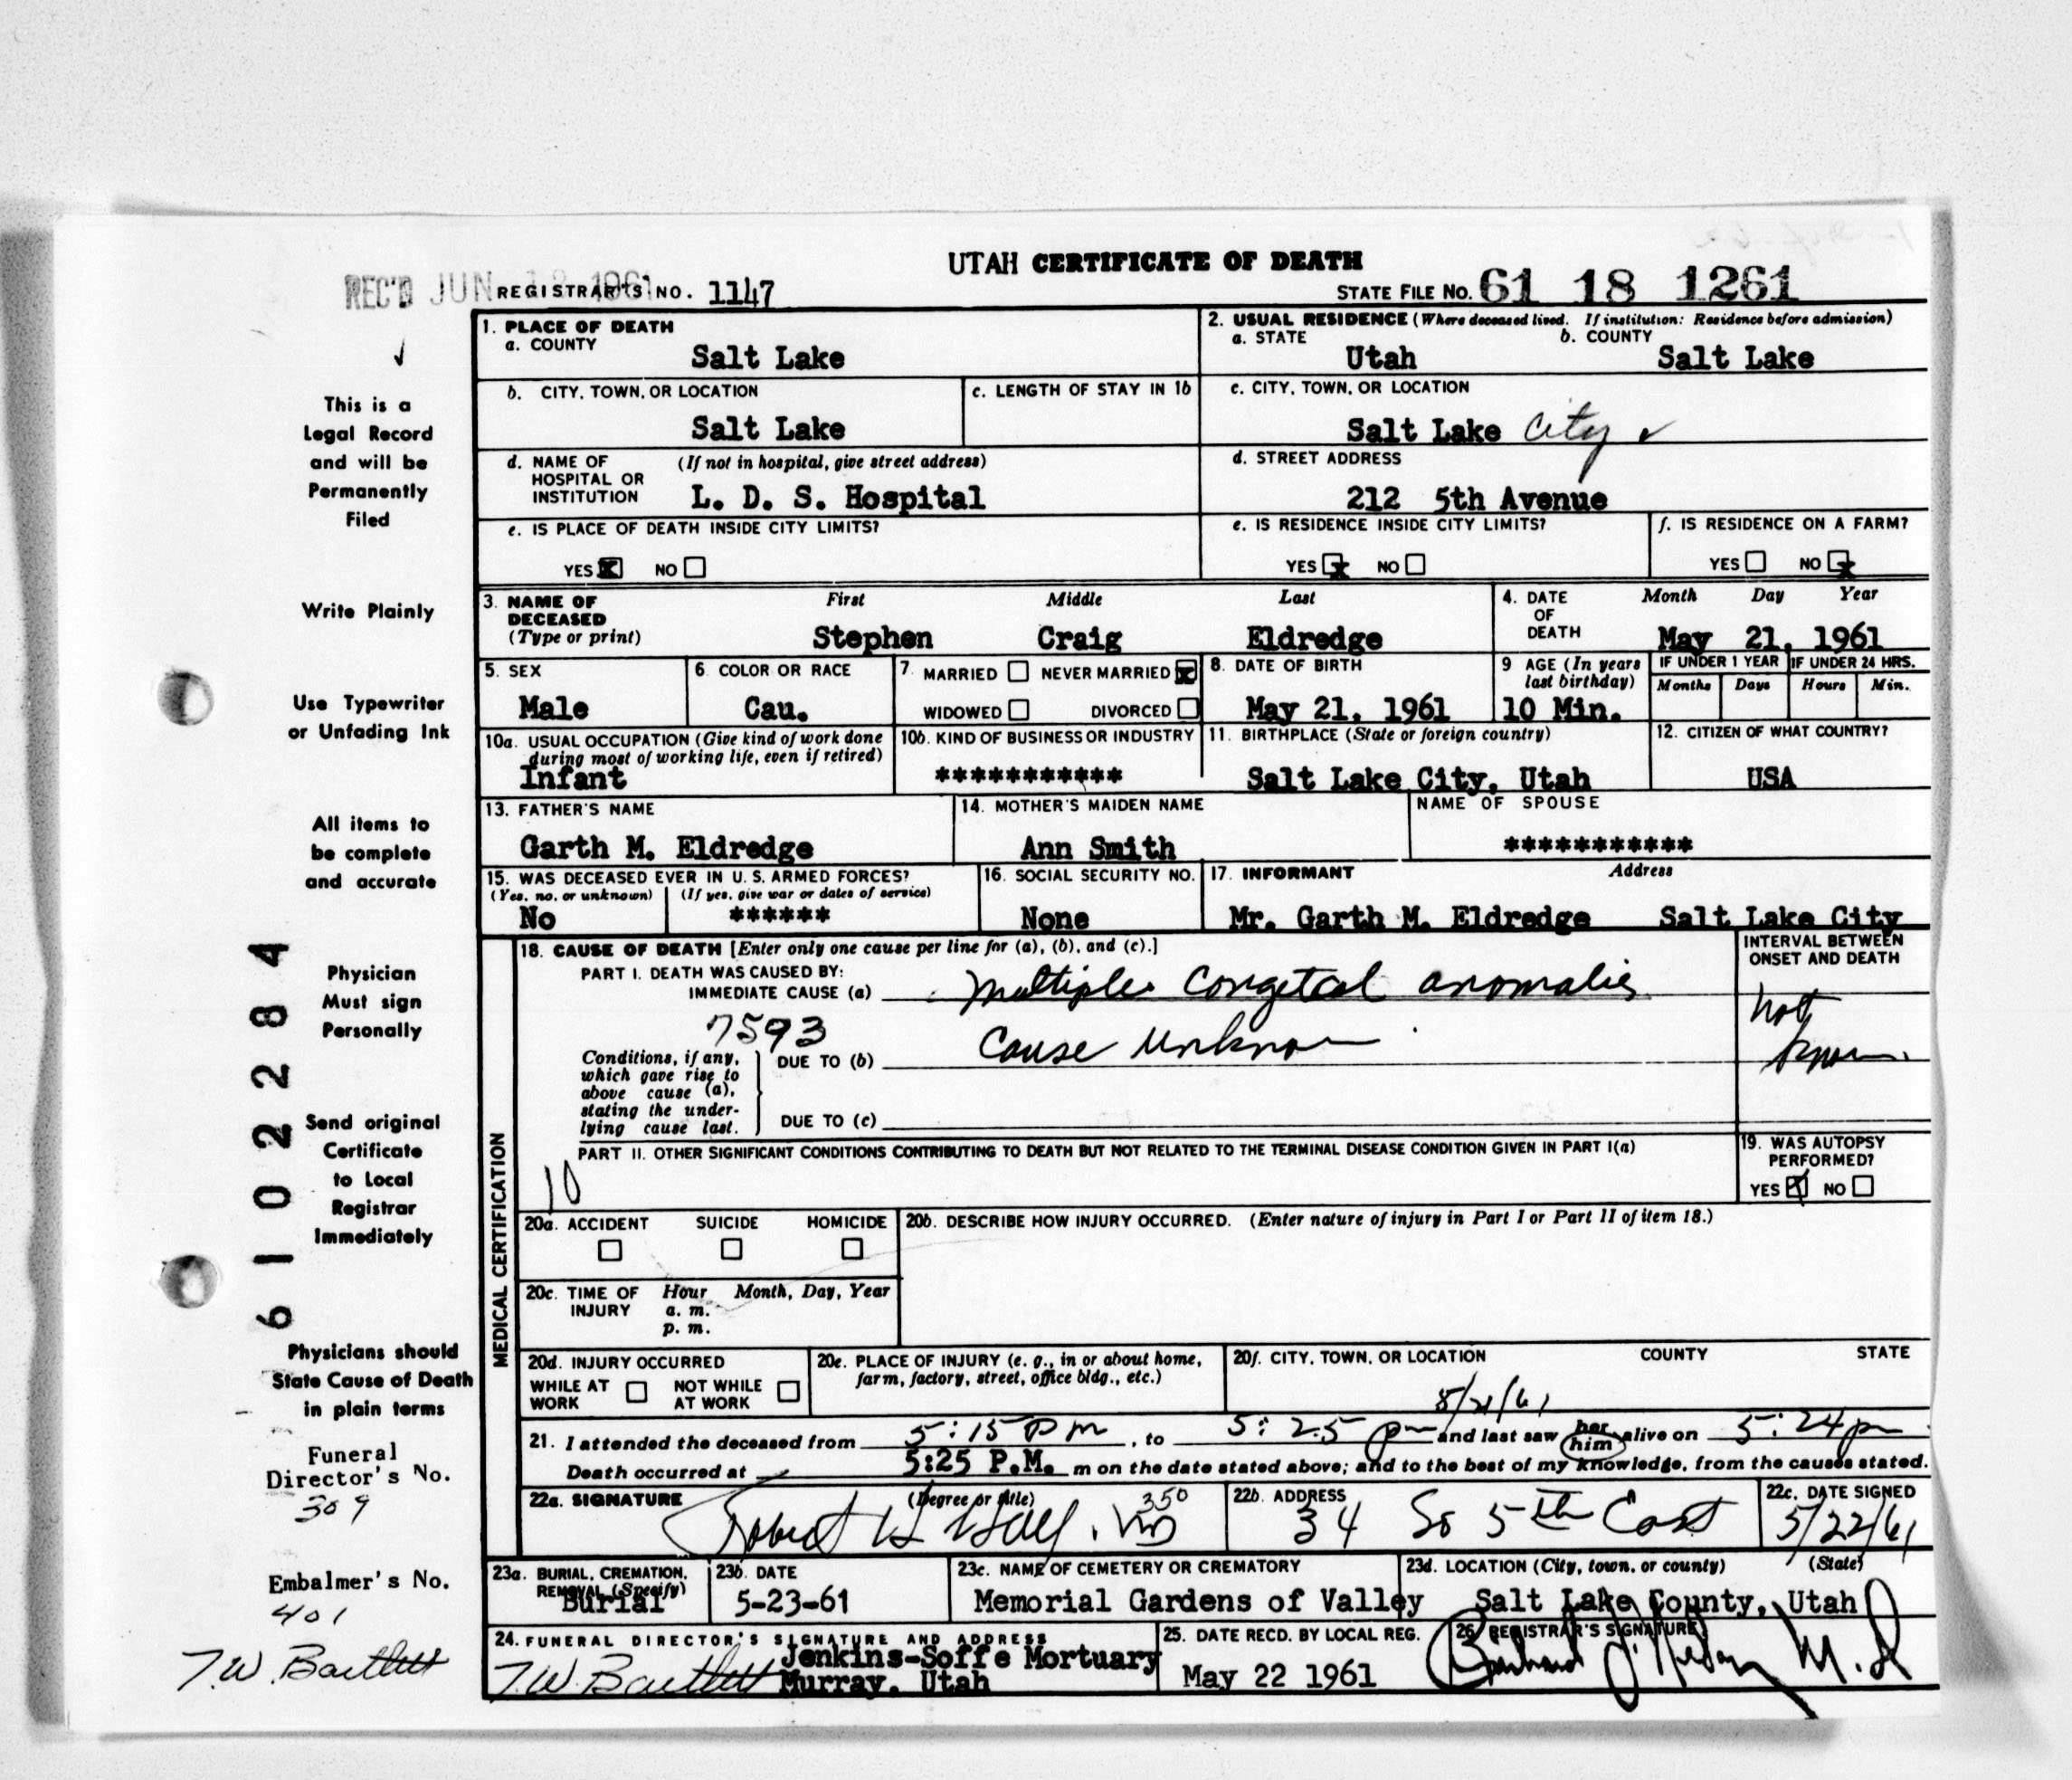 UTAH CERTIFICATE OF DEATH
REC'D JUN 1961 REGISTRAR'S NO. 1147 STATE FILE No. 61 18 1261
1. PLACE OF DEATH
a. COUNTY
Salt Lake
2. USUAL RESIDENCE (Where deceased lived. If institution: Residence before admission)
a. STATE b. COUNTY
Utah Salt Lake
b. CITY, TOWN, OR LOCATION
Salt Lake
c. LENGTH OF STAY IN 1b
c. CITY, TOWN, OR LOCATION
Salt Lake City
d. NAME OF HOSPITAL OR INSTITUTION (If not in hospital, give street address)
L. D. S. Hospital
d. STREET ADDRESS
212 5th Avenue
e. IS PLACE OF DEATH INSIDE CITY LIMITS?
YES x NO
e. IS RESIDENCE INSIDE CITY LIMITS?
YES x NO
f. IS RESIDENCE ON A FARM?
YES NO x
3. NAME OF DECEASED (Type or print)
First Middle Last
Stephen Craig Eldredge
4. DATE OF DEATH
Month Day Year
May 21, 1961
5. SEX
Male
6. COLOR OR RACE
Cau.
7. MARRIED NEVER MARRIED x
WIDOWED DIVORCED
8. DATE OF BIRTH
May 21, 1961
9 AGE (In years last birthday)
10 Min.
IF UNDER 1 YEAR IF UNDER 24 HRS.
Months Days Hours Min.
10a. USUAL OCCUPATION (Give kind of work done
during most of working life, even if retired)
Infant
10b. KIND OF BUSINESS OR INDUSTRY
***********
11. BIRTHPLACE (State or foreign country)
Salt Lake City, Utah
12. CITIZEN OF WHAT COUNTRY?
USA
13. FATHER'S NAME
Garth M. Eldredge
14. MOTHER'S MAIDEN NAME
Ann Smith
NAME OF SPOUSE
***********
15. WAS DECEASED EVER IN U. S. ARMED FORCES?
(Yes, no, or unknown) (If yes, give war or dates of service)
No ******
16. SOCIAL SECURITY NO.
None
17. INFORMANT Address
Mr. Garth M. Eldredge Salt Lake City
MEDICAL CERTIFICATION
18. CAUSE OF DEATH [Enter only one cause per line for (a), (b), and (c).]
INTERVAL BETWEEN
ONSET AND DEATH
PART I. DEATH WAS CAUSED BY:
IMMEDIATE CAUSE (a) Multiple Congetal anomalies
not
7593
Conditions, if any,
which gave rise to
above cause (a),
stating the under-
lying cause last.
DUE TO (b) Cause Unknown
known
DUE TO (c)
PART II. OTHER SIGNIFICANT CONDITIONS CONTRIBUTING TO DEATH BUT NOT RELATED TO THE TERMINAL DISEASE CONDITION GIVEN IN PART I(a)
10
19. WAS AUTOPSY
PERFORMED?
YES x NO
20a. ACCIDENT SUICIDE HOMICIDE
20b. DESCRIBE HOW INJURY OCCURRED. (Enter nature of injury in Part I or Part II of item 18.)
20c. TIME OF INJURY
Hour Month, Day, Year
a. m.
p. m.
20d. INJURY OCCURRED
WHILE AT WORK NOT WHILE AT WORK
20e. PLACE OF INJURY (e. g., in or about home,
farm, factory, street, office bldg., etc.)
20f. CITY, TOWN, OR LOCATION COUNTY STATE
5/21/61
21. I attended the deceased from 5:15 pm, to 5:25 pm and last saw her him alive on 5:24 pm
Death occurred at 5:25 P.M. m on the date stated above; and to the best of my knowledge, from the causes stated.
22a. SIGNATURE (Degree or title)
Robert H. MD 350
22b. ADDRESS
34 So 5th East
22c. DATE SIGNED
5/22/61
23a. BURIAL, CREMATION,
REMOVAL (Specify)
Burial
23b. DATE
5-23-61
23c. NAME OF CEMETERY OR CREMATORY
Memorial Gardens of Valley
23d. LOCATION (City, town, or county) (State)
Salt Lake County, Utah
24. FUNERAL DIRECTOR'S SIGNATURE AND ADDRESS
T.W. Bartlett Jenkins-Soffe Mortuary
Murray, Utah
25. DATE RECD. BY LOCAL REG.
May 22 1961
26. REGISTRAR'S SIGNATURE
M. D
This is a
Legal Record
and will be
Permanently
Filed
Write Plainly
Use Typewriter
or Unfading Ink
All items to
be complete
and accurate
Physician
Must sign
Personally
Send original
Certificate
to Local
Registrar
Immediately
Physicians should
State Cause of Death
in plain terms
Funeral
Director's No.
309
Embalmer's No.
401
T.W. Bartlett
6102284